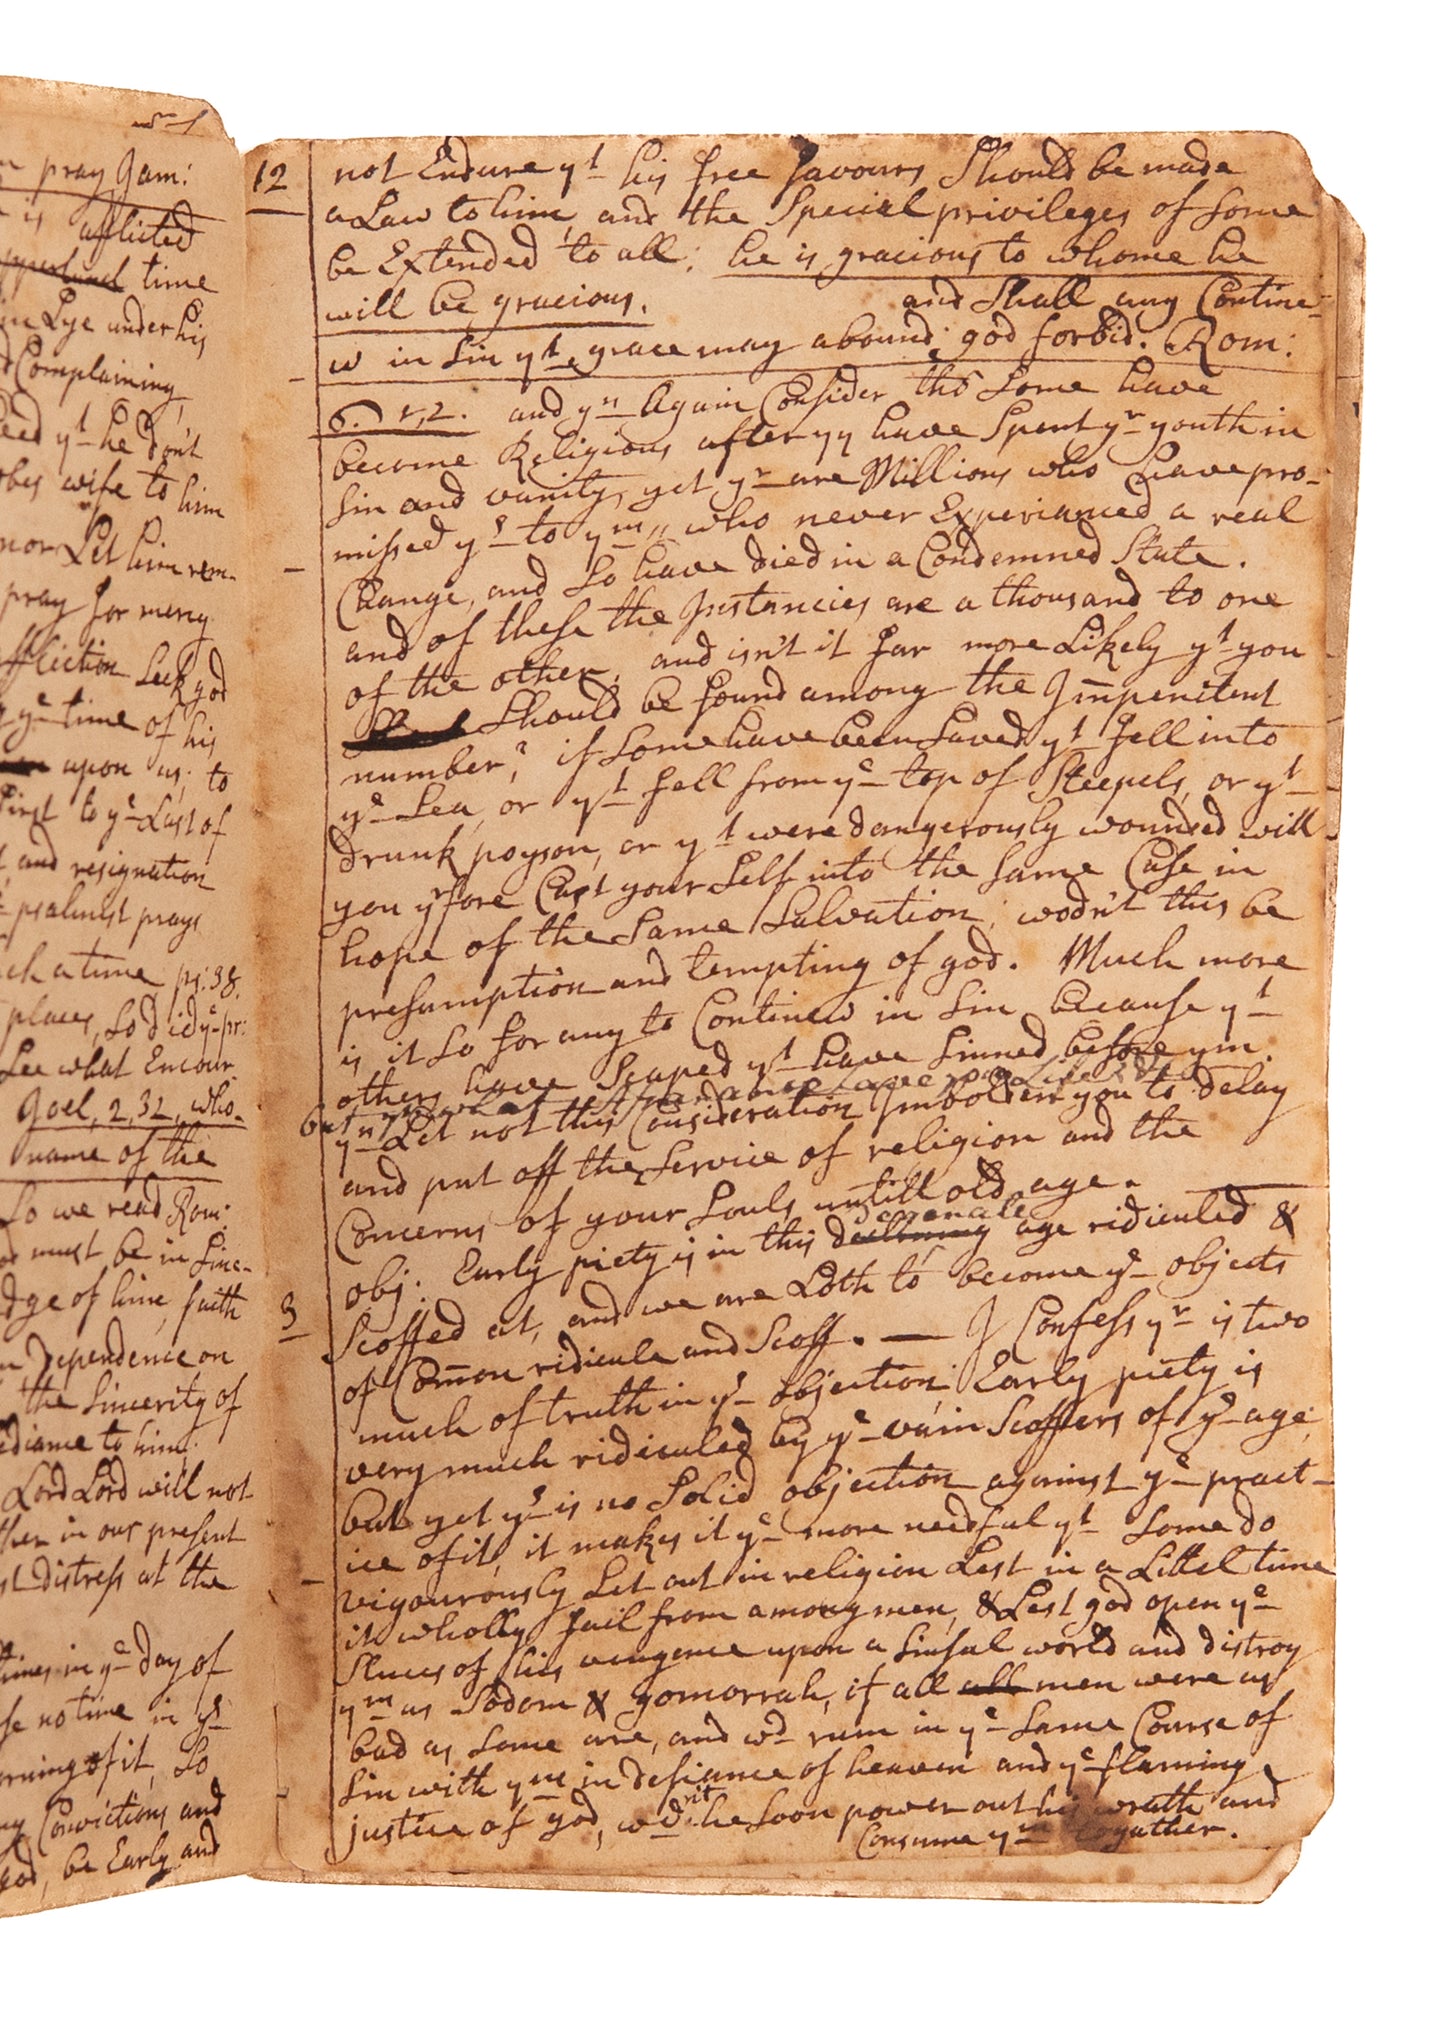 pray Jam:
is afflicted
time
Lye under his
Complaining,
yt he don't
wife to him
nor Let him rem-
pray for mercy
Seek god
ye time of his
upon us; to
first to ye Last of
and resignation
psalmist prays
time ps: 38.
places, So did ye pr:
See what Encour
Joel, 2, 32, who-
name of the
So we read Rom:
must be in Sinc-
of him, faith
Dependence on
the Sincerity of
to him;
Lord Lord will not
in our present
distress at the
in ye day of
no time in ye
of it, So
Convictions and
god, be Early and
12
not Endure yt his free favours Should be made
a Law to him, and the Special privileges of Some
be Extended to all: he is gracious to whome he
will be gracious. and Shall any Contine-
w in Sin yt grace may abound; god forbid. Rom:
6. 1,2. and yn Again Consider tho Some have
become Religious after yy have Spent yr youth in
Sin and vanity, yet yr are Millions who have pro-
missed ys to ym, who never Experianced a real
Change, and So have died in a Condemned State.
and of these the Instancies are a thousand to one
of the other, and isn't it far more Likely yt you
Should be found among the Impenitent
number? if Some have been Saved yt fell into
ye Sea, or yt fell from ye top of Steepels, or yt
drunk poyson, or yt were dangerously wounded will
you yrfore Cast your Self into the Same Case in
hope of the Same Salvation; wodn't this be
presumption and tempting of god. Much more
is it So for any to Continew in Sin because yt
others have Scaped yt have Sinned before ym.
yn Let not this Consideration Imbolden you to delay
and put off the Service of religion and the
Concerns of your Souls untill old age.
3
obj: Early piety is in this degenerate age ridiculed &
Scoffed at, and we are Loth to become ye objects
of Com̄on ridicule and Scoff. — I Confess yr is two
much of truth in ys objection; Early piety is
very much ridiculed by ye vain Scoffers of ys age;
but yet ys is no Solid objection against ye pract-
ice of it, it makes it ye more needful yt Some do
vigourously Set out in religion Lest in a Littel time
it wholly fail from among men, & Lest god open ye
Sluces of his vengence upon a Sinful world and distroy
ym as Sodom & gomorrah, if all all men were as
bad as Some are, and wd runn in ye Same Course of
Sin with ym in defiance of heaven and ye flaming
justice of god, wd nt he Soon power out his wrath and
Consume ym togather.